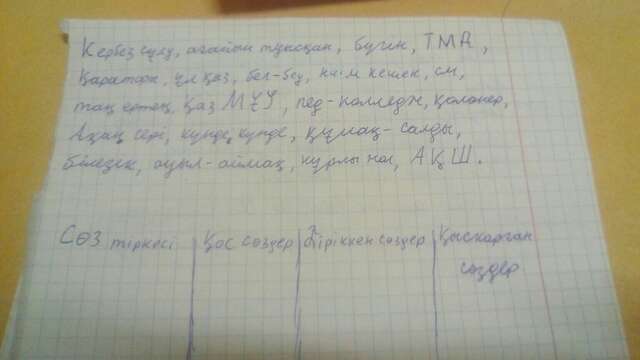 Кербез сұлу, ағайын тұнқан, бүгін, ТМД,
Қараторғ, ұл қаз, бел-беу, киім кешек, см,
таң ертең, ҚазМҰУ, пед-колледж, қолөнер,
Ақан сері, күнде күнде, құмақ-салды,
білезік, ауыл-аймақ, нұрлы, АҚШ.
Сөз тіркесі Қос сөздер Біріккен сөздер Қысқарған
сөздер